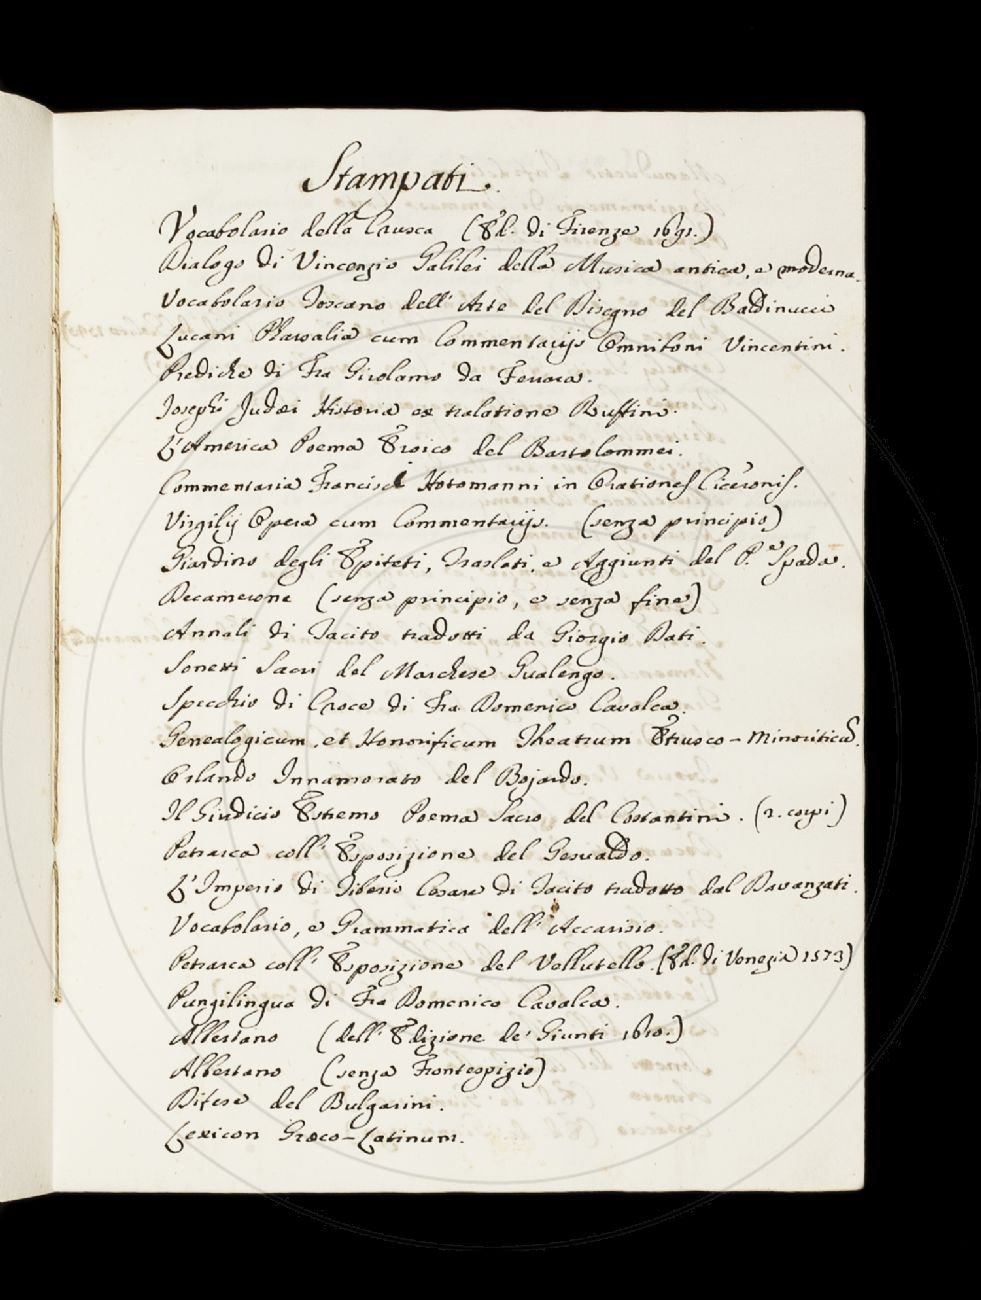 Stampati.
Vocabolario della Crusca (Ed. di Firenze 1691.)
Dialogo di Vincenzio Galilei della Musica antica, e moderna.
Vocabolario Toscano dell' Arte del Disegno del Baldinucci
Lucani Pharsalia cum Commentarijs Omniboni Vincentini.
Prediche di Fra Girolamo da Ferrara.
Josephi Judæi Historia ex tralatione Ruffini.
L'America Poema Eroico del Bartolommei.
Commentaria Francisci Hotomanni in Orationes Ciceronis.
Virgilij Opera cum Commentarijs. (senza principio)
Giardino degli Epiteti, Traslati, e Aggiunti del P.e Spada.
Decamerone (senza principio, e senza fine)
Annali di Tacito tradotti da Giorgio Dati.
Sonetti Sacri del Marchese Gualengo.
Specchio di Croce di Fra Domenico Cavalca.
Genealogicum, et Honorificum Theatrum Etrusco-Minoriticũ.
Orlando Innamorato del Bojardo.
Il Giudicio Estremo Poema Sacro del Costantini. (2. copi)
Petrarca coll' Esposizione del Gesualdo.
L'Imperio di Tiberio Cesare di Tacito tradotto dal Davanzati.
Vocabolario, e Grammatica dell' Accarisio.
Petrarca coll' Esposizione del Vellutello. (Ed. di Venezia 1573)
Pungilingua di Fra Domenico Cavalca.
Albertano (dell' Edizione de' Giunti 1610.)
Albertano (senza Frontespizio)
Difese del Bulgarini.
Lexicon Græco-Latinum.